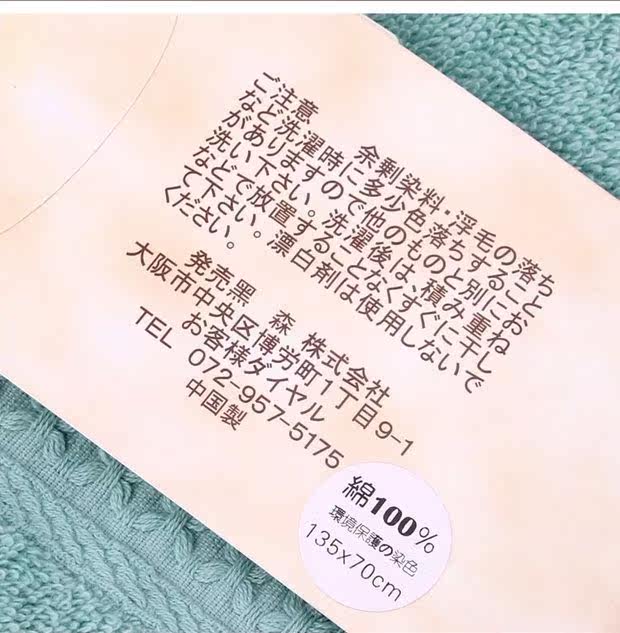 ご注意　　余剰染料・浮毛の落ち
など洗濯時に多少色落ちすること
がありますので他のものと別にお
洗い下さい。洗濯後は、積み重ね
などで放置することなくすぐに干し
て下さい。漂白剤は使用しないで
ください。
発売黑　森　株式会社
大阪市中央区博労町1丁目9-1
お客様ダイヤル
TEL 072-957-5175
中国製
綿100%
環境保護の染色
135x70cm